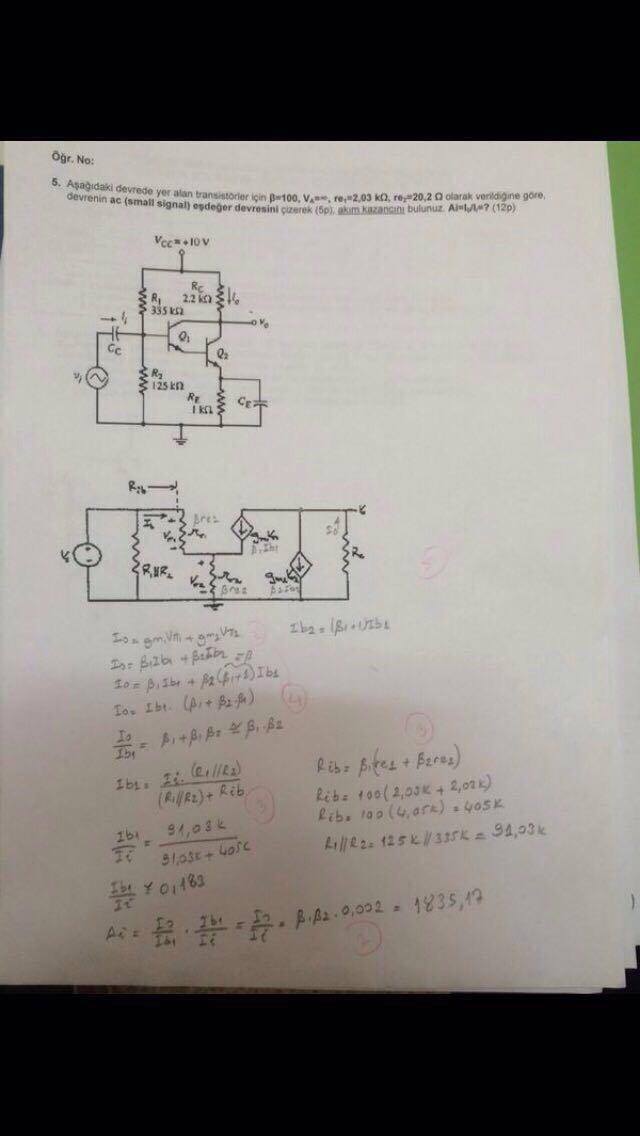 Öğr. No:
5. Aşağıdaki devrede yer alan transistörler için β=100, VA=∞, re1=2,03 kΩ, re2=20,2 Ω olarak verildiğine göre,
devrenin ac (small signal) eşdeğer devresini çizerek (5p), akım kazancını bulunuz. Ai=Io/Ii=? (12p)
VCC = +10 V
RC
2.2 kΩ
Io
R1
335 kΩ
Ii
vo
Q1
CC
Q2
vi
R2
125 kΩ
RE
1 kΩ
CE
Rib
βre2
Ib
Vπ1
rπ1
gmVπ
β1Ib1
Io
Vs
R1//R2
Vπ2
rπ2
βre2
gm2Vπ2
β2Ib2
Rc
5
Io = gm1Vπ1 + gm2Vπ2
Ib2 = (β1+1)Ib1
Io = β1Ib1 + β2Ib2 = β
Io = β1Ib1 + β2(β1+1)Ib1
Io = Ib1. (β1 + β2.β1)
4
Io/Ib1 = β1 + β1β2 ≅ β1.β2
3
Rib = β1(re1 + β2re2)
Ib1 = Ii.(R1//R2) / (R1//R2) + Rib
3
Rib = 100(2,03k + 2,02k)
Rib = 100(4,05k) = 405k
R1//R2 = 125k//335k = 91,03k
Ib1/Ii = 91,03k / 91,03k + 405k
Ib1/Ii ≅ 0,183
Ai = Io/Ib1 . Ib1/Ii = Io/Ii = β1β2.0,002 = 1835,17
2